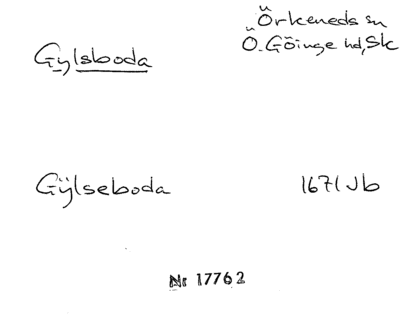 Gylsboda
Örkeneds sn
Ö. Göinge hd, Sk
Gÿlseboda 1671 Jb
Nr 17762